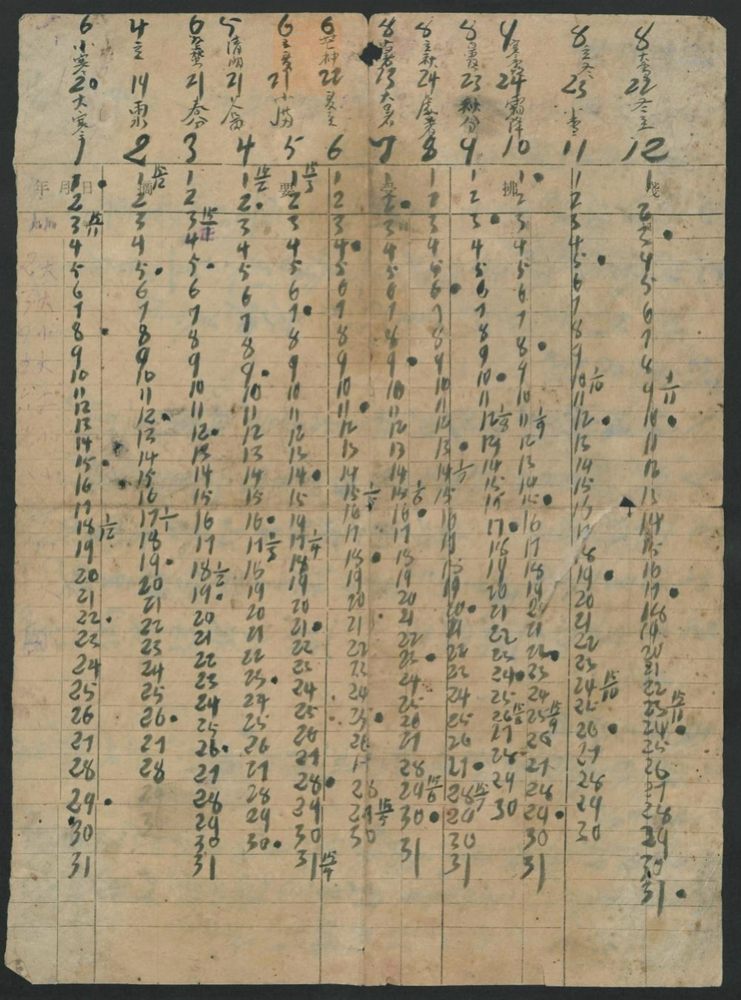 6 小寒 20 大寒 1
4 立 14 雨 2
6 21 春分 3
5 清明 21 4
6 立夏 21 小满 5
6 芒种 22 夏至 6
8 23 大暑 7
8 立秋 24 8
8 白露 23 秋分 9
9 寒露 24 霜降 10
8 立冬 23 小雪 11
8 大雪 22 冬至 12
年 月 日 摘 要
1 2 3 15/11 4 5 6 7 8 9 10 11 12 13 14 15 16 17 18 1/12 19 20 21 22 23 24 25 26 27 28 29 30 31
1 15/12 2 3 4 5 6 7 8 9 10 11 12 13 14 15 16 17 1/1 18 19 20 21 22 23 24 25 26 27 28
1 2 3 15/1 4 5 6 7 8 9 10 11 12 13 14 15 16 17 18 1/2 19 20 21 22 23 24 25 26 27 28 29 30 31
1 15/2 2 3 4 5 6 7 8 9 10 11 12 13 14 15 16 17 1/3 18 19 20 21 22 23 24 25 26 27 28 29 30
1 15/3 2 3 4 5 6 7 8 9 10 11 12 13 14 15 16 17 1/4 18 19 20 21 22 23 24 25 26 27 28 29 30 31 15/4
1 2 3 4 5 6 7 8 9 10 11 12 13 14 15 1/5 16 17 18 19 20 21 22 23 24 25 26 27 28 29 15/5 30
1 2 3 4 5 6 7 8 9 10 11 12 13 14 15 1/6 16 17 18 19 20 21 22 23 24 25 26 27 28 29 15/6 30 31
1 2 3 4 5 6 7 8 9 10 11 12 13 14 1/7 15 16 17 18 19 20 21 22 23 24 25 26 27 28 15/7 29 30 31
1 2 3 4 5 6 7 8 9 10 11 12 1/8 13 14 15 16 17 18 19 20 21 22 23 24 25 26 15/8 27 28 29 30
1 2 3 4 5 6 7 8 9 10 11 1/9 12 13 14 15 16 17 18 19 20 21 22 23 24 25 15/9 26 27 28 29 30 31
1 2 3 4 5 6 7 8 9 10 1/10 11 12 13 14 15 16 17 18 19 20 21 22 23 24 15/10 25 26 27 28 29 30
1 2 3 4 5 6 7 8 9 1/11 10 11 12 13 14 15 16 17 18 19 20 21 22 23 15/11 24 25 26 27 28 29 30 31